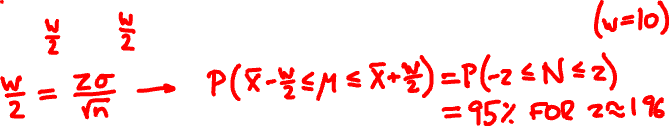 (w=10)
w/2 w/2
w/2 = zσ/√n → P(x̄-w/2≤μ≤x̄+w/2)=P(-z≤N≤z)
=95% FOR z≈1.96